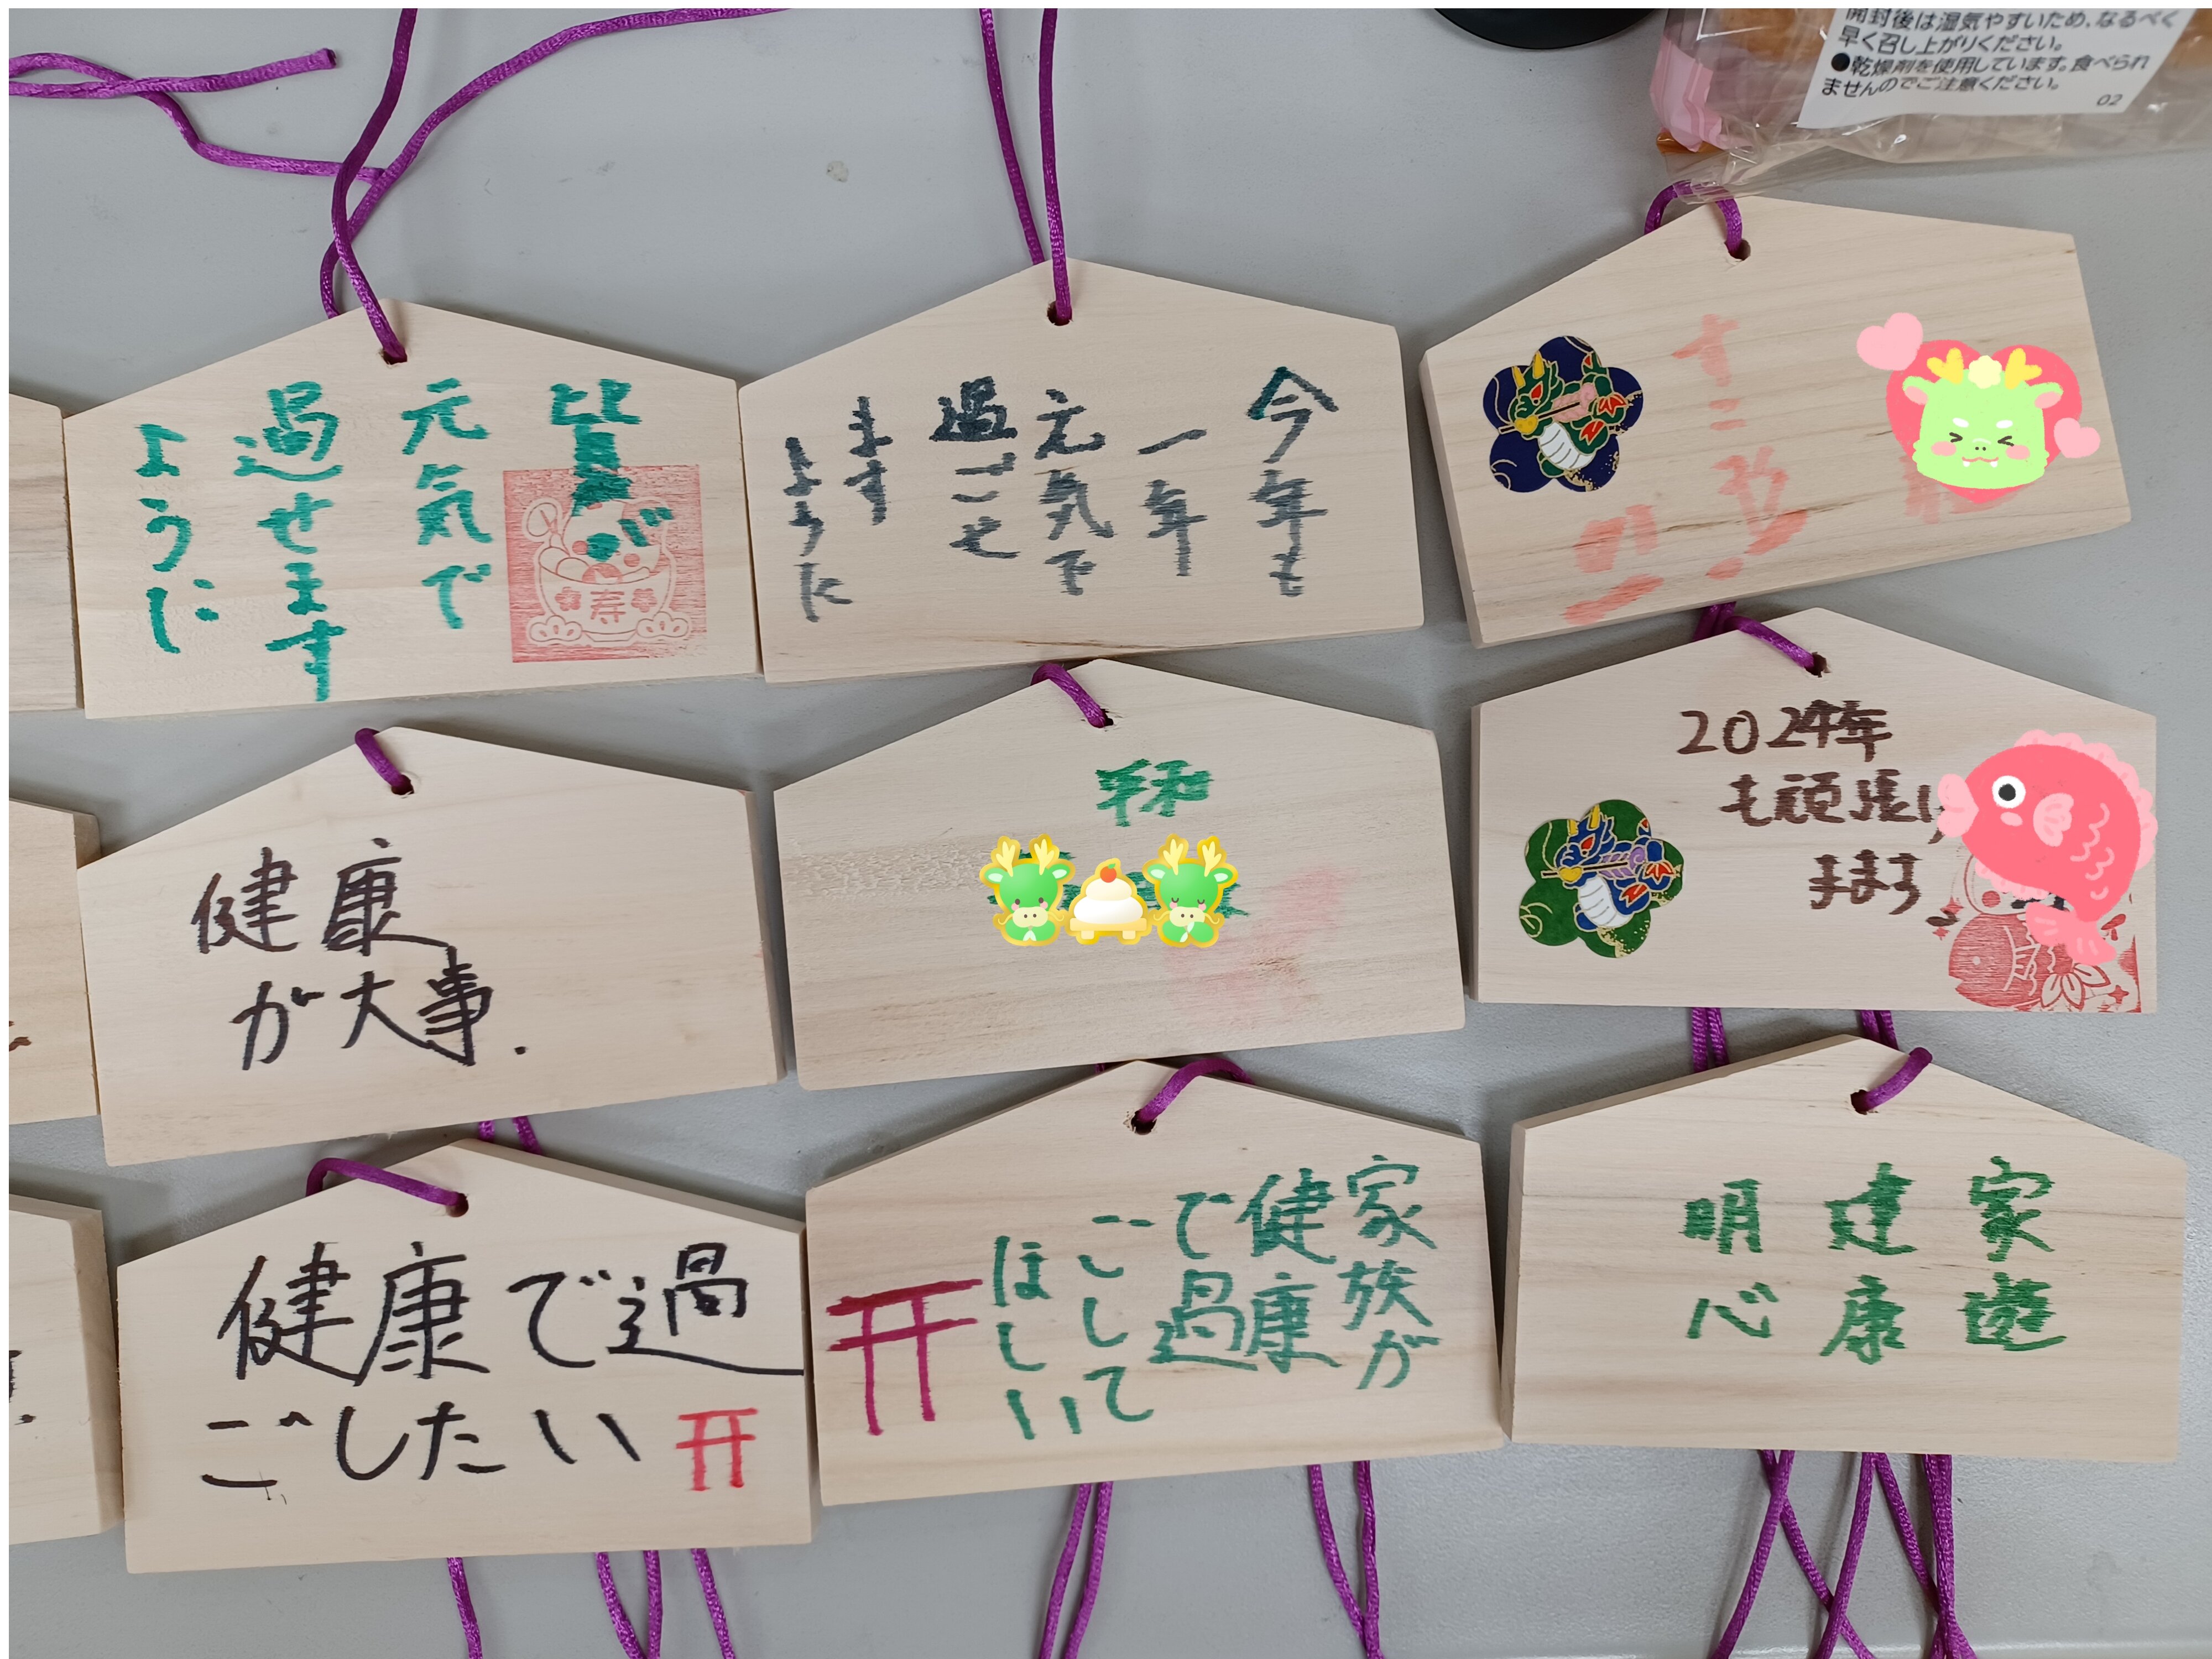 開封後は湿気やすいため、なるべく
早く召し上がりください。
●乾燥剤を使用しています。食べられ
ませんのでご注意ください。
02
皆が
元気で
過せます
ように
寿
今年も
一年
元気で
過ごせ
ます
ように
健康
が大事.
平和
2024年
も頑張り
ます
健康で過
ごしたい
家族が
健康
で過
ごして
ほしい
家
健康
明心